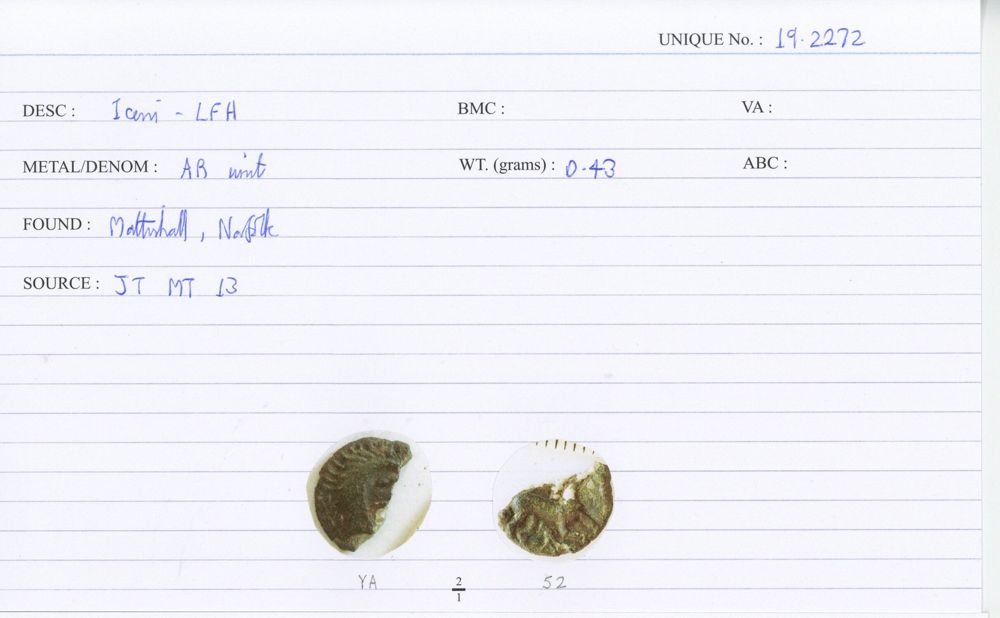 UNIQUE No. : 19.2272
DESC : Iceni - LFH
BMC :
VA :
METAL/DENOM : AR unit
WT. (grams) : 0.43
ABC :
FOUND : Mattishall, Norfolk
SOURCE : JT MT 13
YA
2
1
52